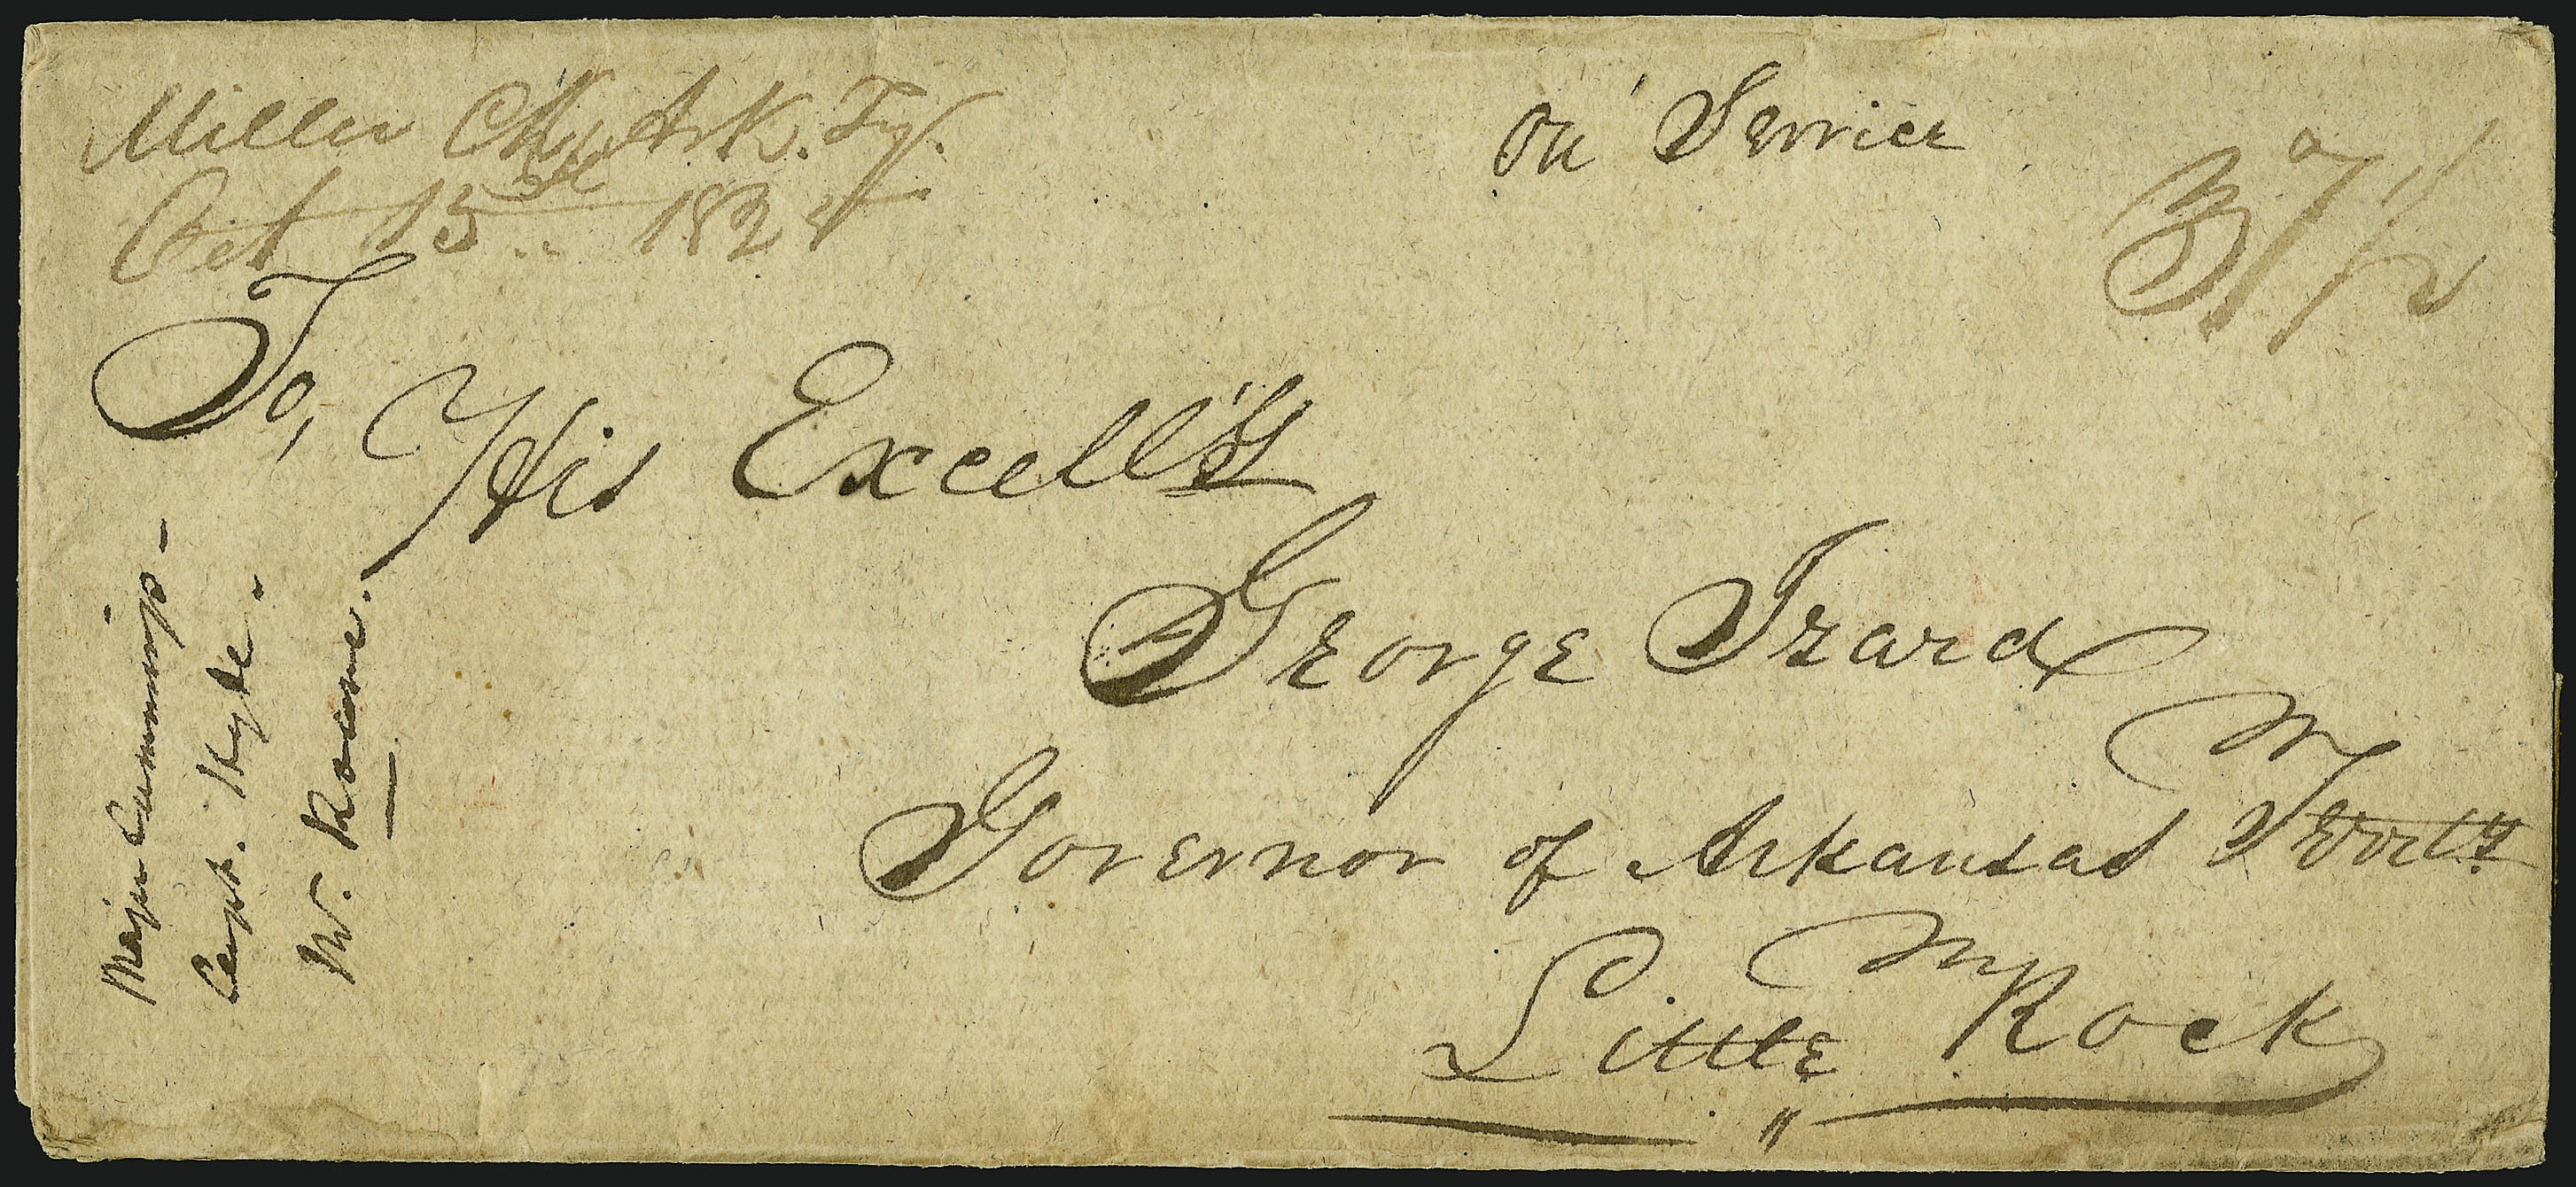 Miller CH, Ark. Ty.
Oct 15th 182
on Service
37 1/2
To, His Excell'y
George Izard
Governor of Arkansas Territy
Little Rock
Major Cummings -
Capt. Hyde -
W.